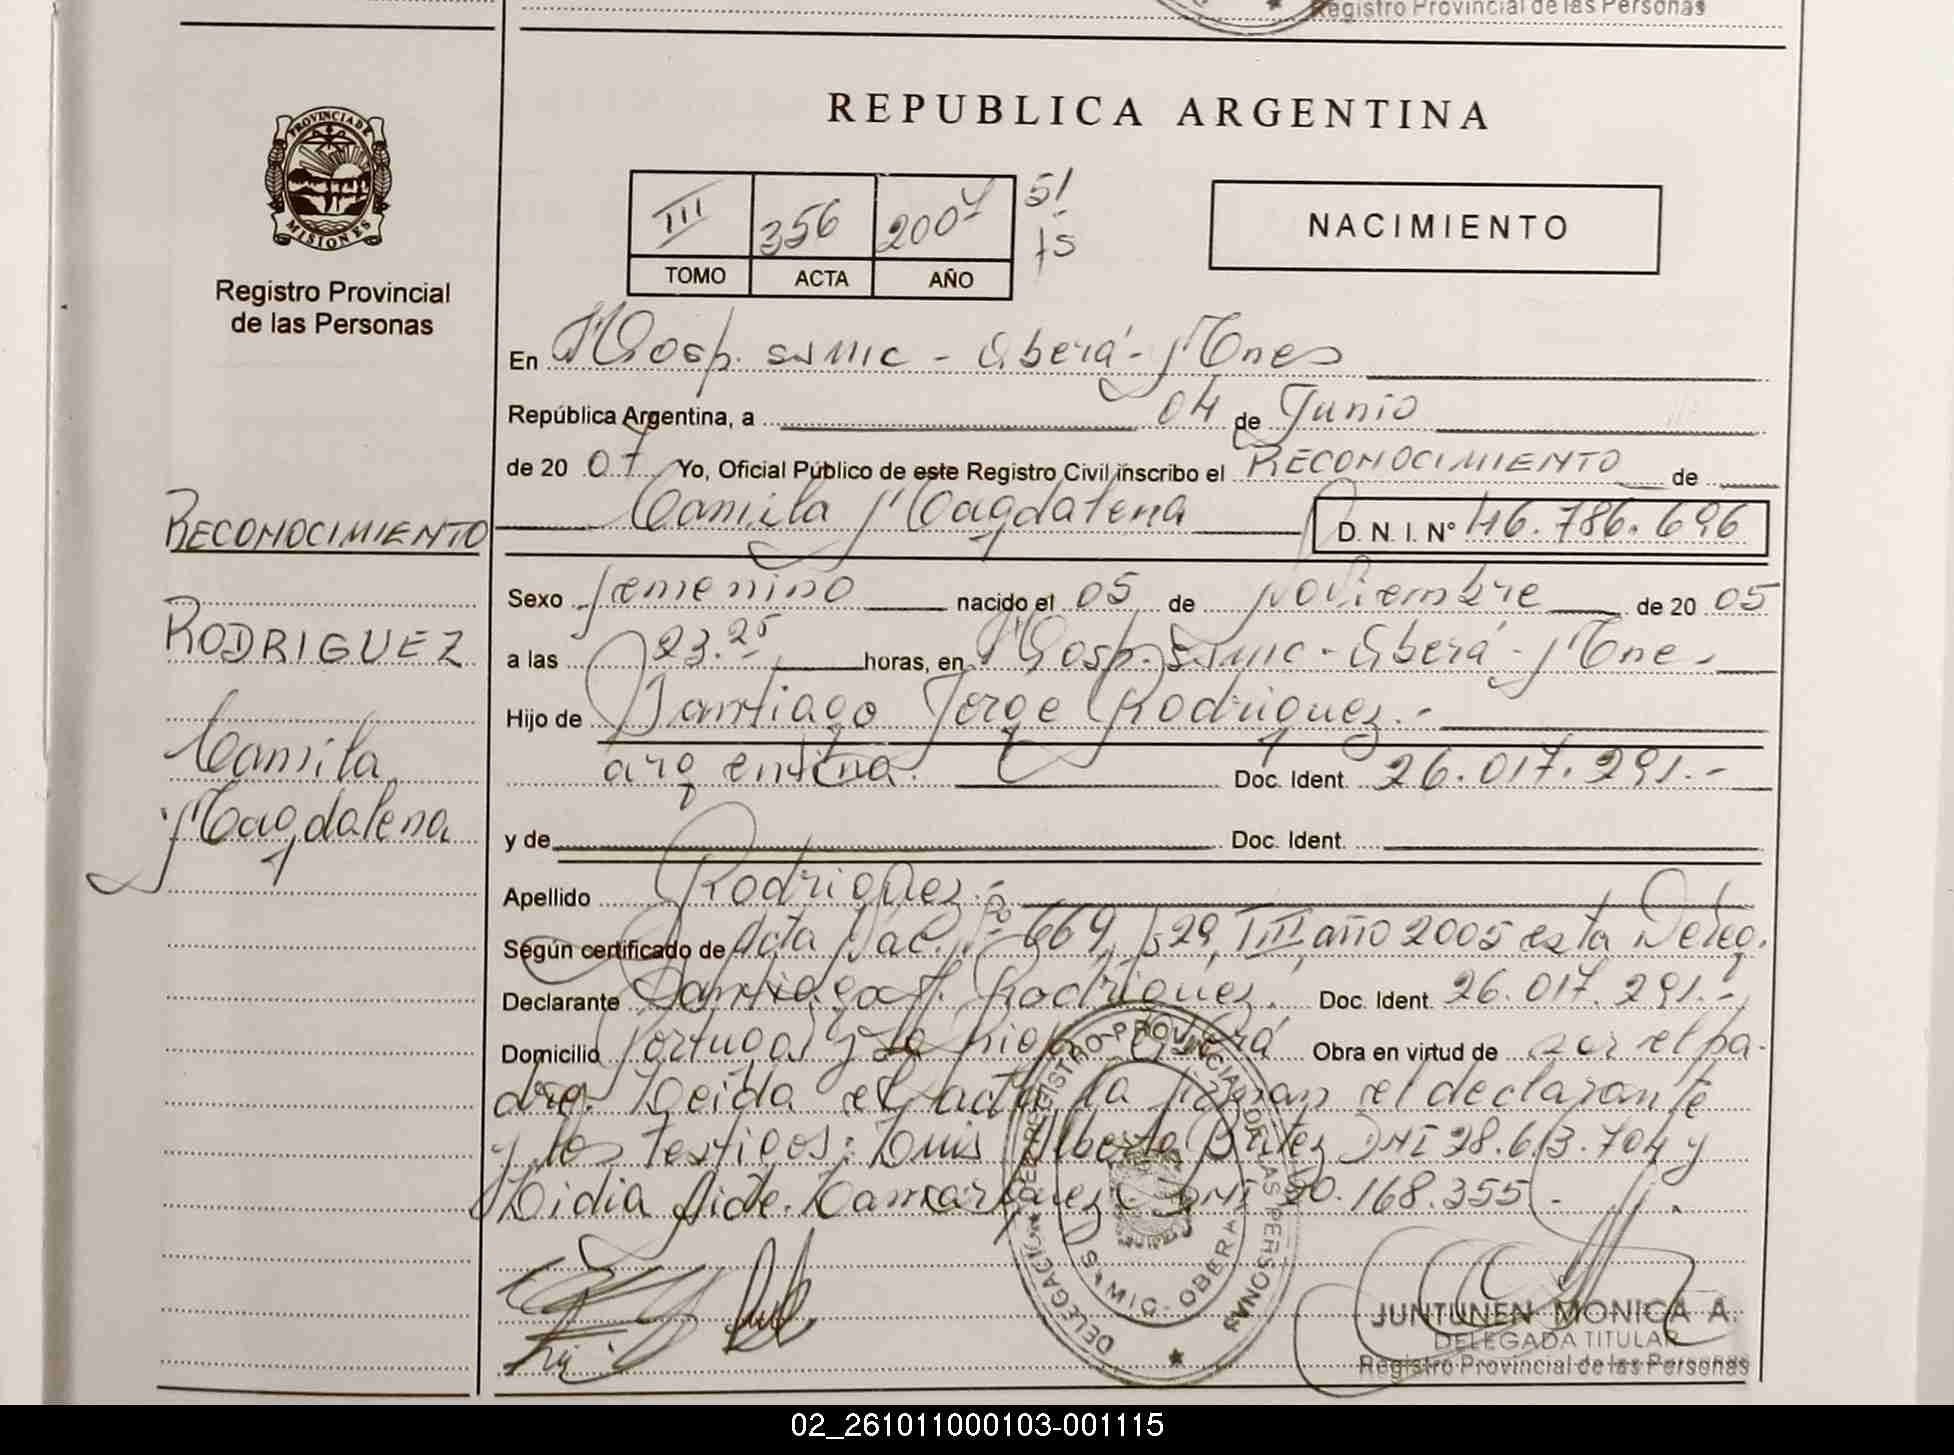 Registro Provincial de las Personas
REPUBLICA ARGENTINA
PROVINCIA DE
MISIONES
Registro Provincial
de las Personas
III 356 2007
TOMO ACTA AÑO
51
fs
NACIMIENTO
En Hosp. SAMIC - Oberá - Mnes
República Argentina, a 04 de Junio
de 20 07 Yo, Oficial Público de este Registro Civil inscribo el RECONOCIMIENTO de
Camila Magdalena D. N. I. N° 46.786.696
RECONOCIMIENTO
RODRIGUEZ
Camila
Magdalena
Sexo femenino nacido el 05 de noviembre de 20 05
a las 23.25 horas, en Hosp. SAMIC - Oberá - Mnes
Hijo de Santiago Jorge Rodriguez.-
argentina. Doc. Ident. 26.017.291.-
y de Doc. Ident.
Apellido Rodriguez.-
Según certificado de Acta Nac. N° 669, fs 29, T III, año 2005 esta Deleg.
Declarante Santiago J. Rodriguez. Doc. Ident. 26.017.291.-
Domicilio Portugal y La Rioja Oberá Obra en virtud de ser el pa-
dre. Leída el acta, la firman el declarante
y los testigos: Luis Alberto Britez DNI 28.613.704 y
Lidia Aide DNI 20.168.355.-
DELEGACION DEL REGISTRO PROVINCIAL DE LAS PERSONAS
OBERA - MIS
JUNTUNEN MONICA A.
DELEGADA TITULAR
Registro Provincial de las Personas
02_261011000103-001115